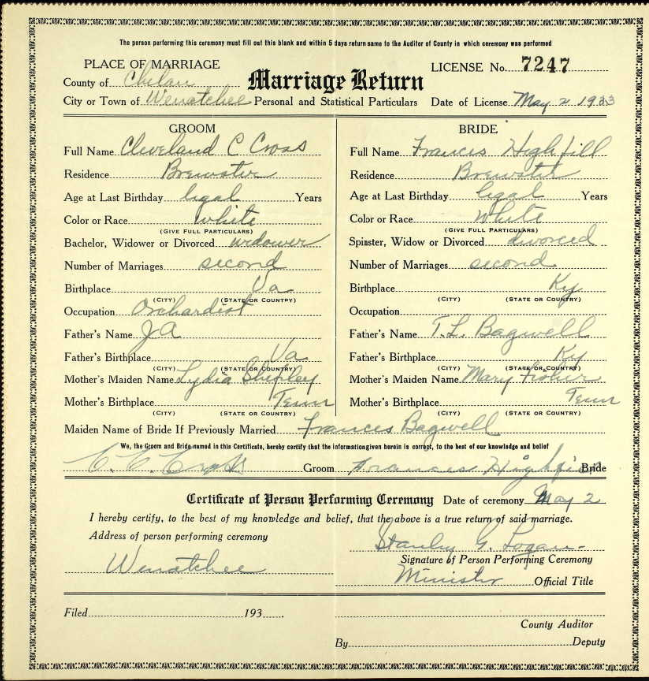 The person performing this ceremony must fill out this blank and within 5 days return same to the Auditor of County in which ceremony was performed
PLACE OF MARRIAGE
County of Chelan
City or Town of Wenatchee
Marriage Return
Personal and Statistical Particulars
LICENSE No. 7247
Date of License May 2 1933
GROOM
Full Name Cleveland C Cross
Residence Brewster
Age at Last Birthday legal Years
Color or Race white
(GIVE FULL PARTICULARS)
Bachelor, Widower or Divorced widower
Number of Marriages second
Birthplace Va
(CITY) (STATE OR COUNTRY)
Occupation Orchardist
Father's Name J A
Father's Birthplace Va
(CITY) (STATE OR COUNTRY)
Mother's Maiden Name Lydia Shipley
Mother's Birthplace Tenn
(CITY) (STATE OR COUNTRY)
BRIDE
Full Name Frances Highfill
Residence Brewster
Age at Last Birthday legal Years
Color or Race White
(GIVE FULL PARTICULARS)
Spinster, Widow or Divorced divorced
Number of Marriages second
Birthplace Ky
(CITY) (STATE OR COUNTRY)
Occupation
Father's Name T.L. Bagwell
Father's Birthplace Ky
(CITY) (STATE OR COUNTRY)
Mother's Maiden Name Mary
Mother's Birthplace Tenn
(CITY) (STATE OR COUNTRY)
Maiden Name of Bride If Previously Married Frances Bagwell
We, the Groom and Bride named in this Certificate, hereby certify that the information given herein is correct, to the best of our knowledge and belief
C. C. Cross Groom Frances Highfill Bride
Certificate of Person Performing Ceremony Date of ceremony May 2
I hereby certify, to the best of my knowledge and belief, that the above is a true return of said marriage.
Address of person performing ceremony
Wenatchee
Stanly G. Logan
Signature of Person Performing Ceremony
Minister Official Title
Filed 193
County Auditor
By Deputy